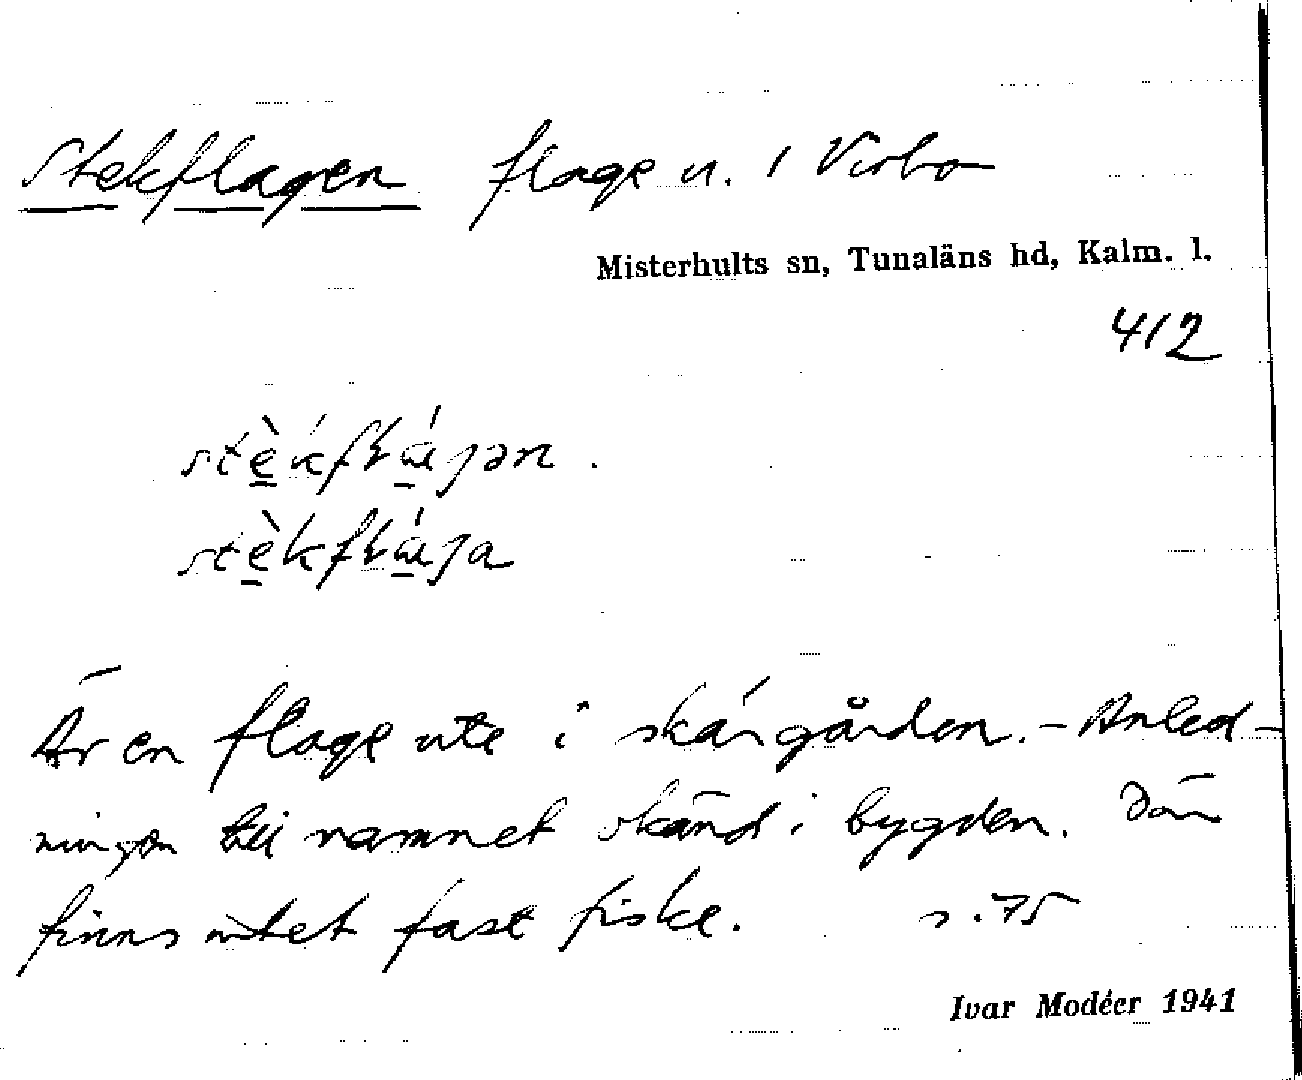 Stekflagen flage u. / Virbo
Misterhults sn, Tunaläns hd, Kalm. l.
412
Är en flage ute i skärgården. – Anled-
ningen till namnet känd i bygden. Där
finns intet fast fiske. s. 75
Ivar Modéer 1941